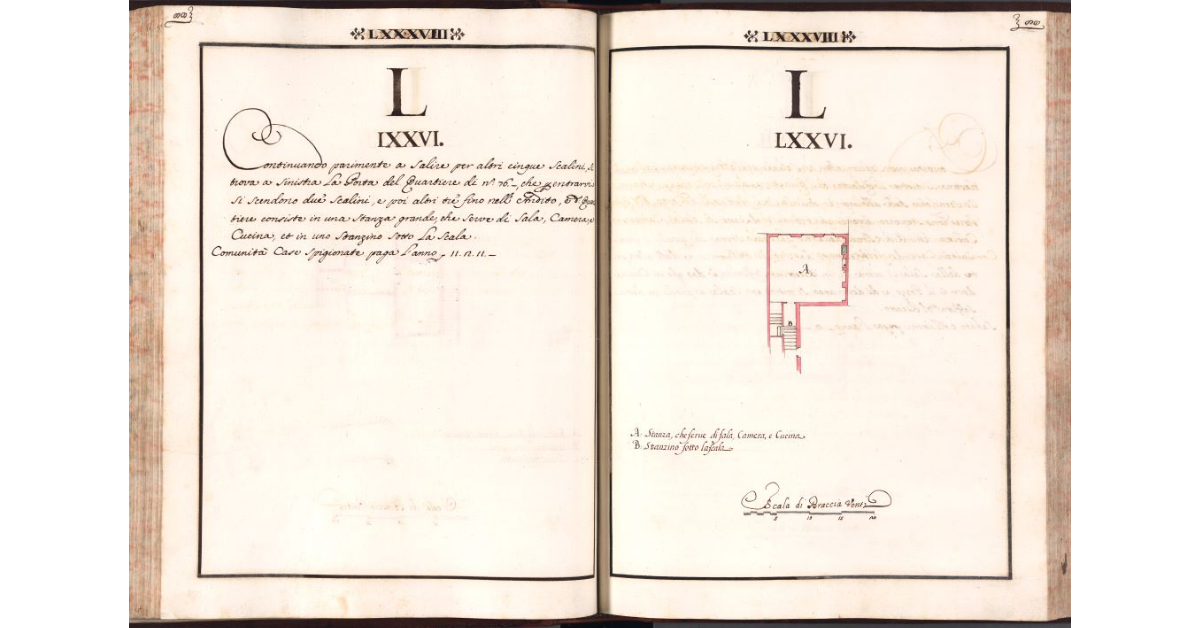 88
LXXXVIII
L
IXXVI.
Continuando parimente a Salire per altri cinque Scalini, si
trova a Sinistra La Porta del Quartiere di nº 76, che entrarvi
Si Scendono due Scalini, e poi altri trè fino nell' Andito, Et
tiere consiste in una Stanza grande, che Serve di Sala, Camera, e
Cucina, et in uno Stanzino Sotto La Scala.
Comunità Case Spigionate paga L'anno 11.12.11.—
88
LXXXVIII
L
LXXVI.
A
B
A. Stanza, che serve di sala, Camera, e Cucina
B. Stanzino sotto la scala
Scala di Braccia Venti
5 10 15 20